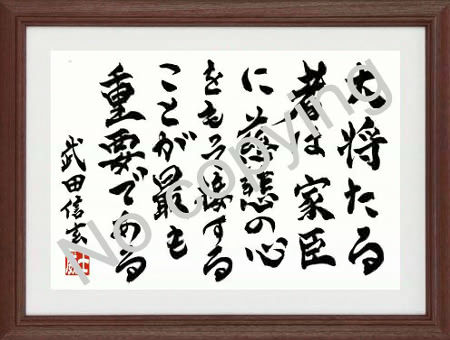 大将たる
者は家臣
に慈悲の心
をもって接する
ことが最も
重要である
武田信玄
No copying